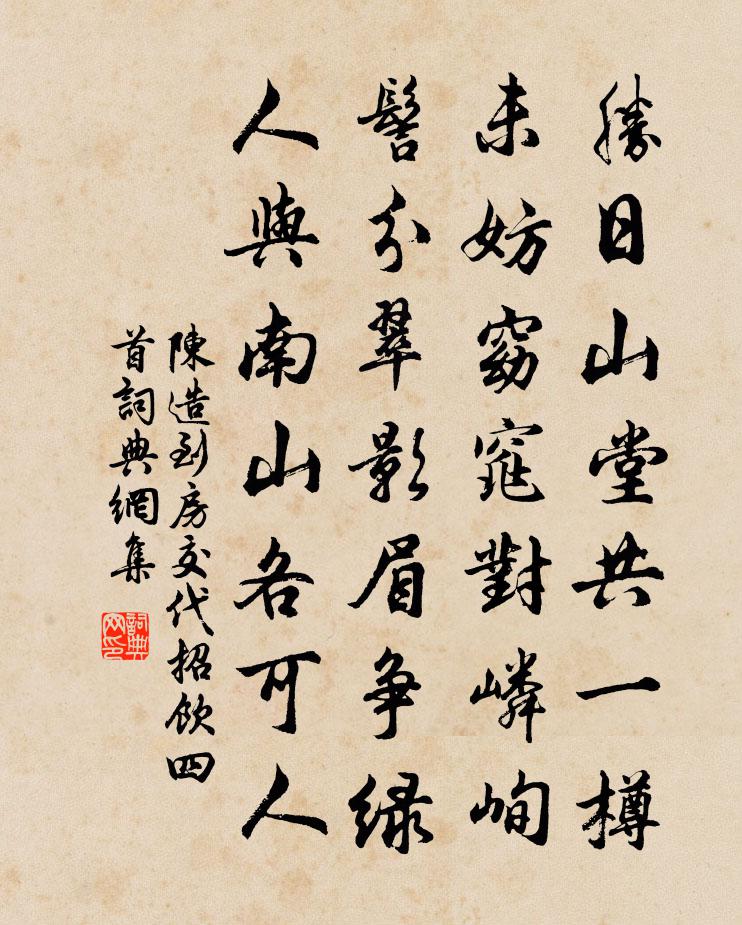 勝日山堂共一樽
未妨窈窕對嶙峋
髻分翠影眉爭綠
人與南山各可人
陳造到房交代招飲四
首詞典網集
詞典网印